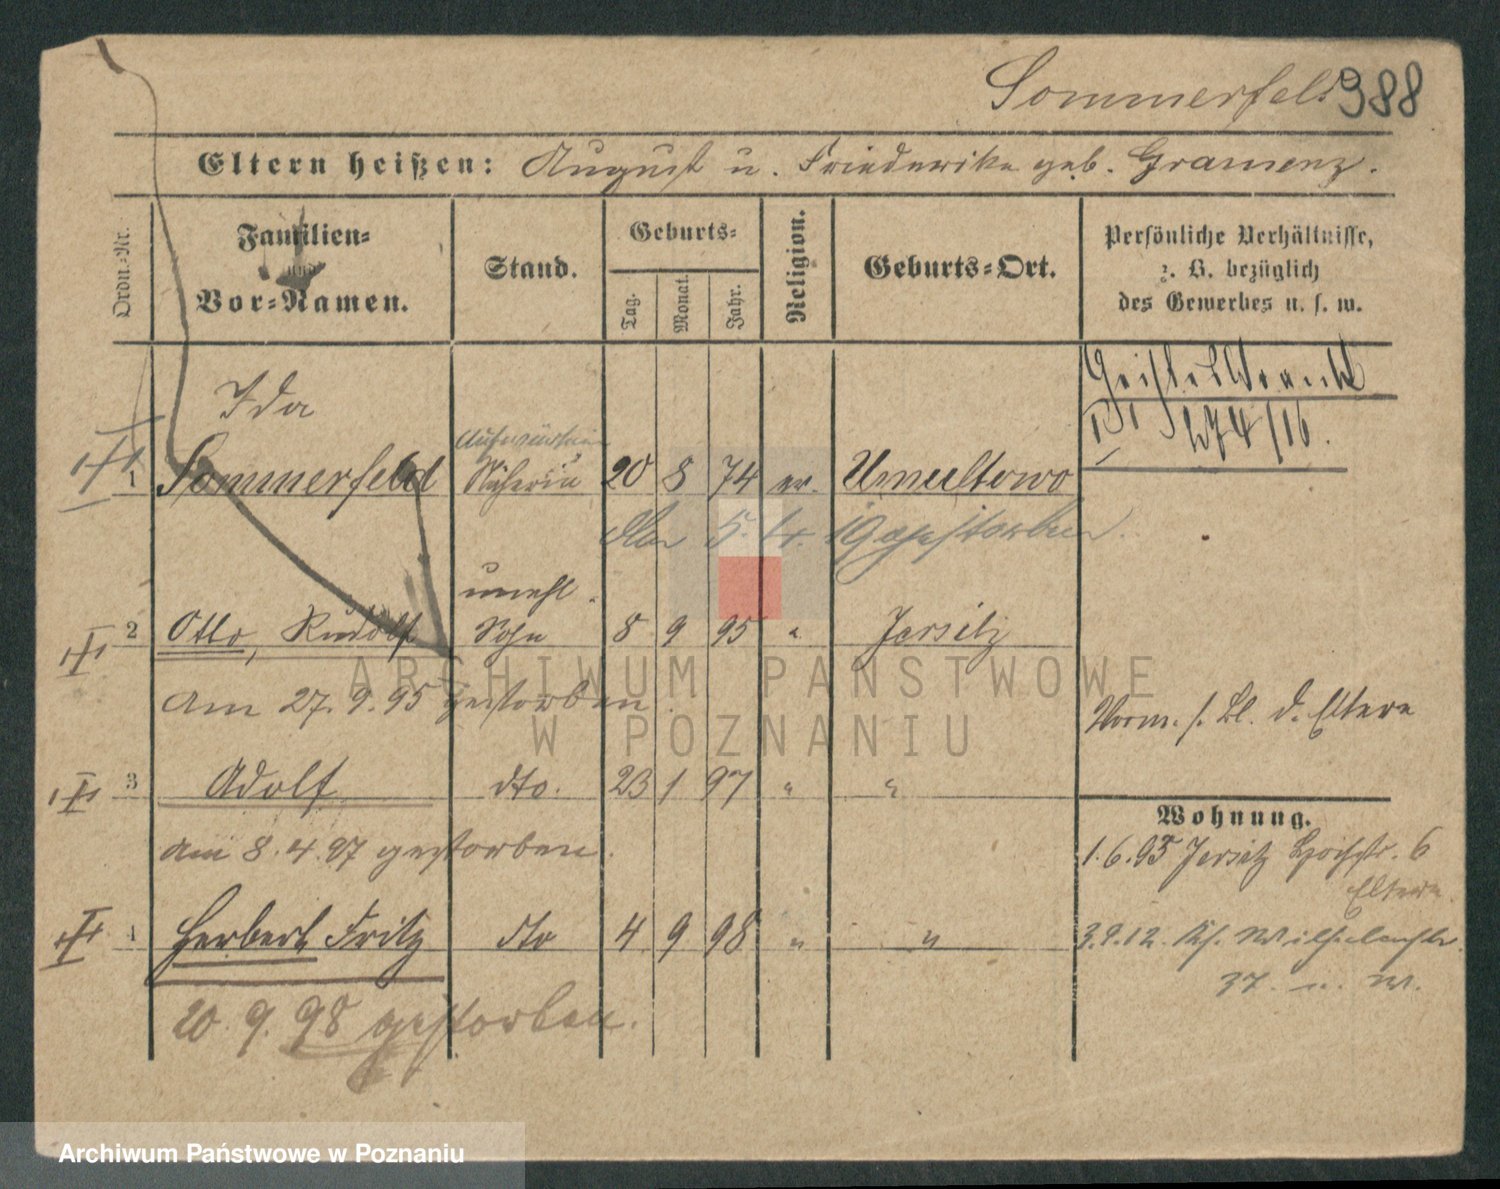 Sommerfeld 388
Eltern heißen: August u. Friederike geb. Gramenz.
Ordn.-Nr.
Familien-
und
Vor-Namen.
Stand.
Geburts-
Tag.
Monat.
Jahr.
Religion.
Geburts-Ort.
Persönliche Verhältnisse,
z. B. bezüglich
des Gewerbes u. s. w.
Ida
Aufwärterin
1 Sommerfeld Näherin 20 8 74 ev. Umultowo
274/16.
den 5. 19 gestorben.
unehl.
2 Otto, Rudolf Sohn 8 9 95 " Jersitz
am 27.9.95 gestorben.
Vorm. s. Bl. d. Eltern
3 Adolf dto. 23 1 97 " "
am 8.4.97 gestorben.
Wohnung.
1.6.95 Jersitz 6
Eltern
4 Herbert Fritz dto 4 9 98 " "
3.9.12. Wilhelmstr.
37.
20.9.98 gestorben.
ARCHIWUM PAŃSTWOWE
W POZNANIU
Archiwum Państwowe w Poznaniu